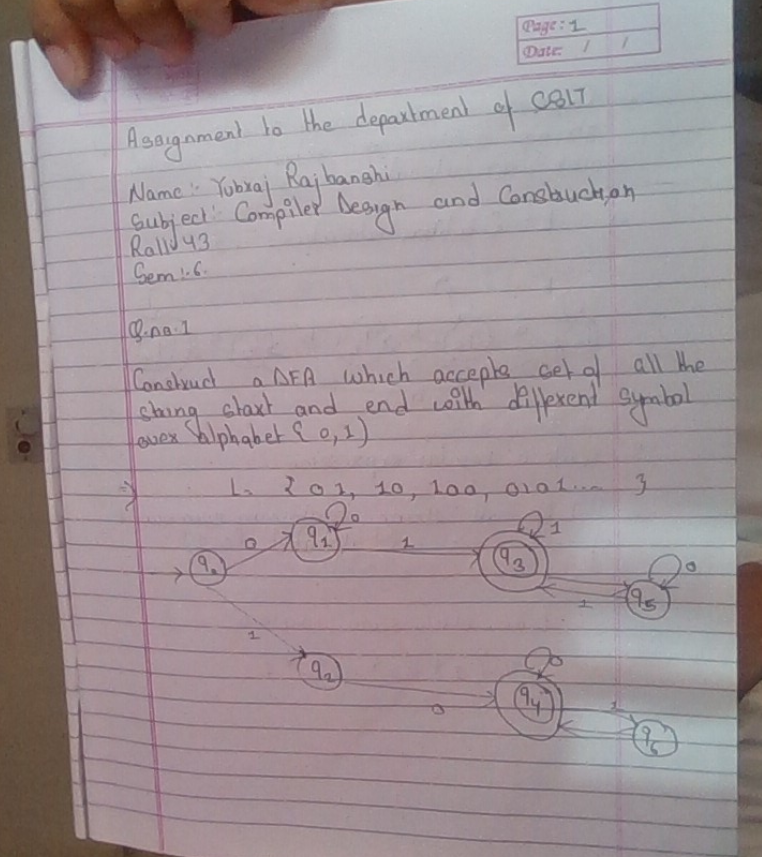 Page: 1
Date: / /
Assignment to the department of CSIT
Name:- Yubraj Rajbanshi
Subject: Compiler Design and Constuction
Roll: 43
Sem:-6.
Q.no.1
Construct a DFA which accepts set of all the
string start and end with different symbol
over alphabet {0,1)
=> L= {01, 10, 100, 0101.... }
0 1
0 q1 1 q3
q0 0
1 q5
1
q2 0
q4 1
0 q6